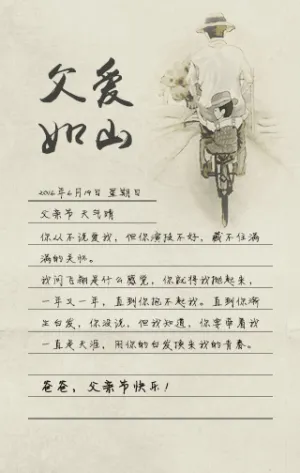 父爱
如山
2016年6月19日 星期日
父亲节 天气晴
你从不说爱我,但你演技不好,藏不住满
满的关怀。
我问飞翔是什么感觉,你就将我抛起来,
一年又一年,直到你抱不起我。直到你渐
生白发,你没说,但我知道,你要带着我
一直走天涯,用你的白发换来我的青春。
爸爸,父亲节快乐!